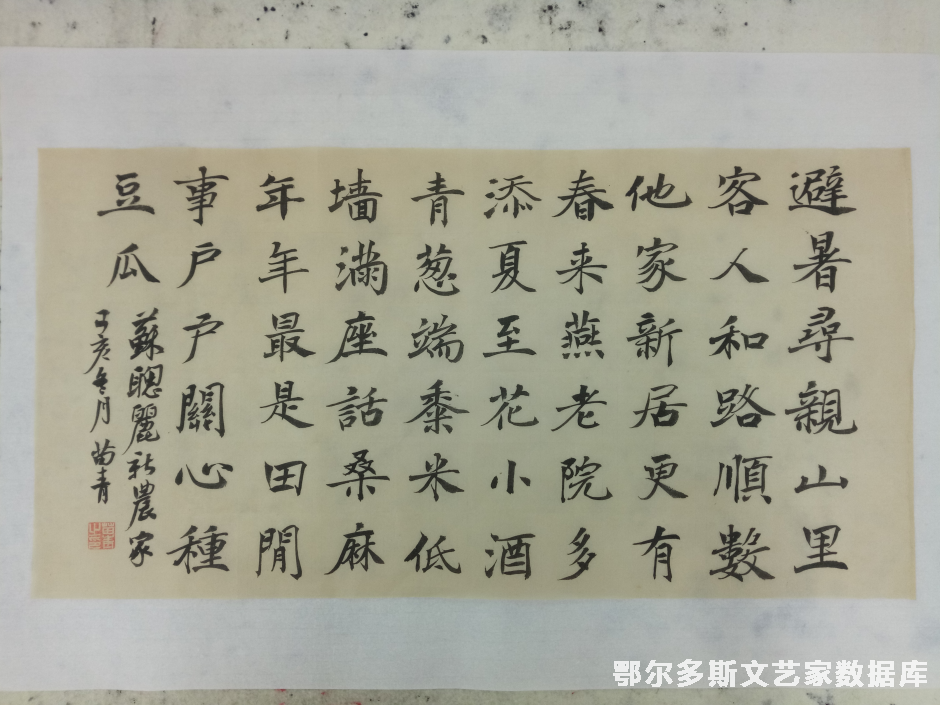 避暑尋親山里
客人和路順數
他家新居更有
春来燕老院多
添夏至花小酒
青葱端黍米低
墙满座話桑麻
年年最是田閒
事戶戶關心種
豆瓜
蘇聰麗社農家
亥冬月苗青
鄂尔多斯文艺家数据库